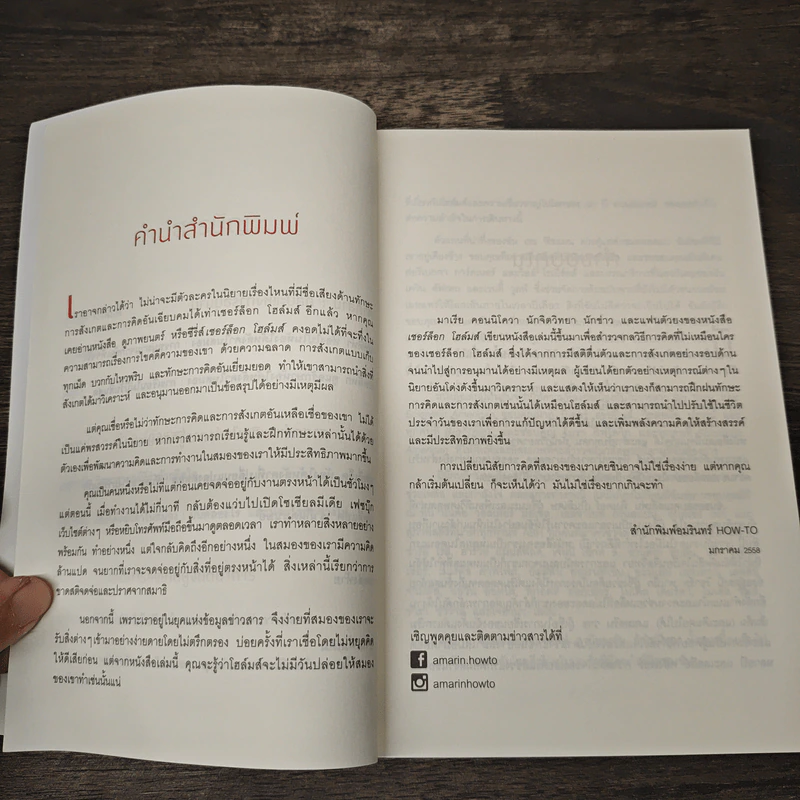 คำนำสำนักพิมพ์
เราอาจกล่าวได้ว่า ไม่น่าจะมีตัวละครในนิยายเรื่องไหนที่มีชื่อเสียงด้านทักษะ
การสังเกตและการคิดอันเฉียบคมได้เท่าเชอร์ล็อก โฮล์มส์ อีกแล้ว หากคุณ
เคยอ่านหนังสือ ดูภาพยนตร์ หรือซีรีส์เชอร์ล็อก โฮล์มส์ คงอดไม่ได้ที่จะทึ่งใน
ความสามารถเรื่องการไขคดีความของเขา ด้วยความฉลาด การสังเกตแบบเก็บ
ทุกเม็ด บวกกับไหวพริบ และทักษะการคิดอันเยี่ยมยอด ทำให้เขาสามารถนำสิ่งที่
สังเกตได้มาวิเคราะห์ และอนุมานออกมาเป็นข้อสรุปได้อย่างมีเหตุมีผล
แต่คุณเชื่อหรือไม่ว่าทักษะการคิดและการสังเกตอันเหลือเชื่อของเขา ไม่ได้
เป็นแค่พรสวรรค์ในนิยาย หากเราสามารถเรียนรู้และฝึกทักษะเหล่านั้นได้ด้วย
ตัวเองเพื่อพัฒนาความคิดและการทำงานในสมองของเราให้มีประสิทธิภาพมากขึ้น
คุณเป็นคนหนึ่งหรือไม่ที่แต่ก่อนเคยจดจ่ออยู่กับงานตรงหน้าได้เป็นชั่วโมงๆ
แต่ตอนนี้ เมื่อทำงานได้ไม่กี่นาที กลับต้องแว่บไปเปิดโซเชียลมีเดีย เฟซบุ๊ก
เว็บไซต์ต่างๆ หรือหยิบโทรศัพท์มือถือขึ้นมาดูตลอดเวลา เราทำหลายสิ่งหลายอย่าง
พร้อมกัน ทำอย่างหนึ่ง แต่ใจกลับคิดถึงอีกอย่างหนึ่ง ในสมองของเรามีความคิด
ล้านแปด จนยากที่เราจะจดจ่ออยู่กับสิ่งที่อยู่ตรงหน้าได้ สิ่งเหล่านี้เรียกว่าการ
ขาดสติจดจ่อและปราศจากสมาธิ
นอกจากนี้ เพราะเราอยู่ในยุคแห่งข้อมูลข่าวสาร จึงง่ายที่สมองของเราจะ
รับสิ่งต่างๆ เข้ามาอย่างง่ายดายโดยไม่ตรึกตรอง บ่อยครั้งที่เราเชื่อโดยไม่หยุดคิด
ให้ดีเสียก่อน แต่จากหนังสือเล่มนี้ คุณจะรู้ว่าโฮล์มส์จะไม่มีวันปล่อยให้สมอง
ของเขาทำเช่นนั้นแน่
มาเรีย คอนนิโควา นักจิตวิทยา นักข่าว และแฟนตัวยงของหนังสือ
เชอร์ล็อก โฮล์มส์ เขียนหนังสือเล่มนี้ขึ้นมาเพื่อสำรวจกลวิธีการคิดที่ไม่เหมือนใคร
ของเชอร์ล็อก โฮล์มส์ ซึ่งได้จากการมีสติตื่นตัวและการสังเกตอย่างรอบด้าน
จนนำไปสู่การอนุมานได้อย่างมีเหตุผล ผู้เขียนได้ยกตัวอย่างเหตุการณ์ต่างๆ ใน
นิยายอันโด่งดังขึ้นมาวิเคราะห์ และแสดงให้เห็นว่าเราเองก็สามารถฝึกฝนทักษะ
การคิดและการสังเกตเช่นนั้นได้เหมือนโฮล์มส์ และสามารถนำไปปรับใช้ในชีวิต
ประจำวันของเราเพื่อการแก้ปัญหาได้ดีขึ้น และเพิ่มพลังความคิดให้สร้างสรรค์
และมีประสิทธิภาพยิ่งขึ้น
การเปลี่ยนนิสัยการคิดที่สมองของเราเคยชินอาจไม่ใช่เรื่องง่าย แต่หากคุณ
กล้าเริ่มต้นเปลี่ยน ก็จะเห็นได้ว่า มันไม่ใช่เรื่องยากเกินจะทำ
สำนักพิมพ์อมรินทร์ HOW-TO
มกราคม 2558
เชิญพูดคุยและติดตามข่าวสารได้ที่
amarin.howto
amarinhowto